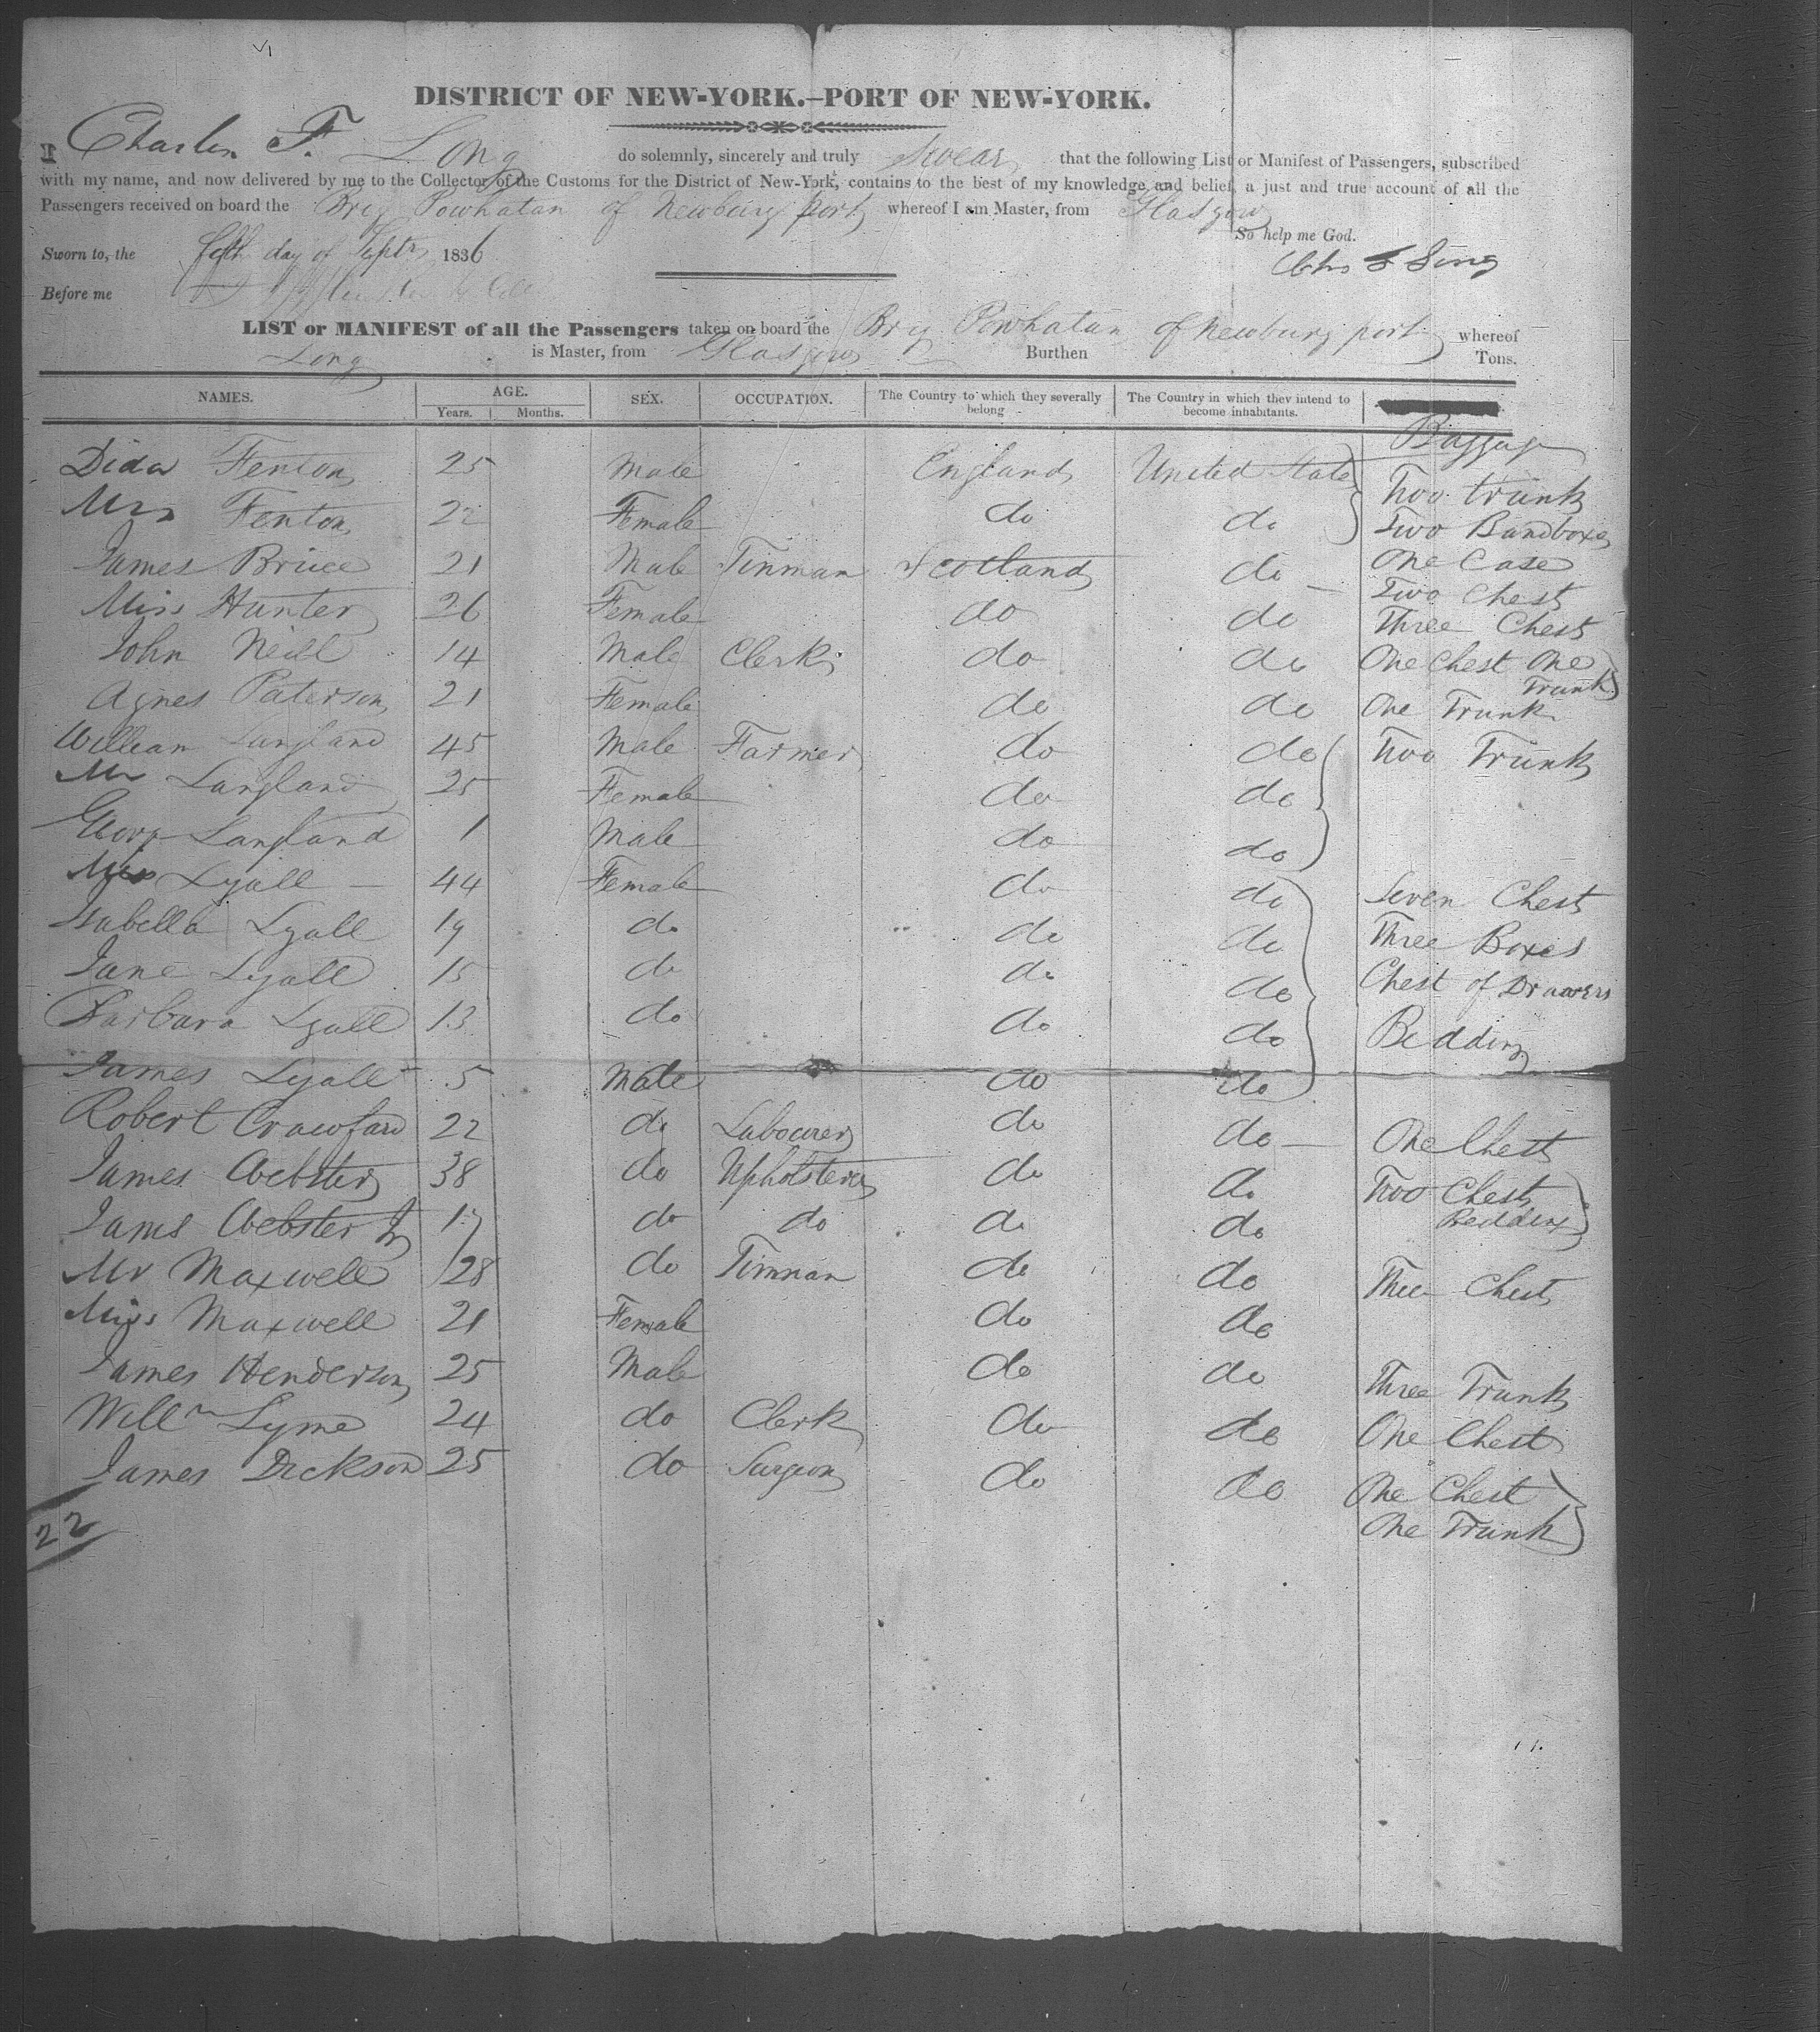 DISTRICT OF NEW-YORK.–PORT OF NEW-YORK.
I Charles F. Long do solemnly, sincerely and truly Swear that the following List or Manifest of Passengers, subscribed
with my name, and now delivered by me to the Collector of the Customs for the District of New-York, contains to the best of my knowledge and belief, a just and true account of all the
Passengers received on board the Brig Powhatan of Newbury port whereof I am Master, from Glasgow
So help me God.
Sworn to, the day of Septr 1836 Chs F Long
Before me
LIST or MANIFEST of all the Passengers taken on board the Brig Powhatan of Newbury port whereof
Long is Master, from Glasgow Burthen Tons.
NAMES. AGE. Years. Months. SEX. OCCUPATION. The Country to which they severally belong The Country in which they intend to become inhabitants.
Baggage
Fenton 25 Male England United State Two trunk
Mrs Fenton 22 Female do do Two Bandboxes
James Bruce 21 Male Tinman Scotland do One Case
Two Chest
Miss Hunter 26 Female do do Three Chest
John Neill 14 Male Clerk do do One Chest One
Trunk
Agnes Paterson 21 Female do do One Trunk
William Langland 45 Male Farmer do do Two Trunk
Langland 25 Female do do
Langland 1 Male do do
Lyall 44 Female do do Seven Chest
Isabella Lyall 19 do do do Three Boxes
Jane Lyall 15 do do do Chest of Drawers
Barbara Lyall 13 do do do Bedding
James Lyall 5 Male do do
Robert Crawford 22 do Labourer do do One Chest
James Webster 38 do Upholsterer do do Two Chest
Bedding
James Webster Jr 17 do do do do
Mr Maxwell 28 do Tinman do do Three Chest
Miss Maxwell 21 Female do do
James Henderson 25 Male do do Three Trunk
Willm Lyme 24 do Clerk do do One Chest
James Dickson 25 do Surgeon do do One Chest
One Trunk
22